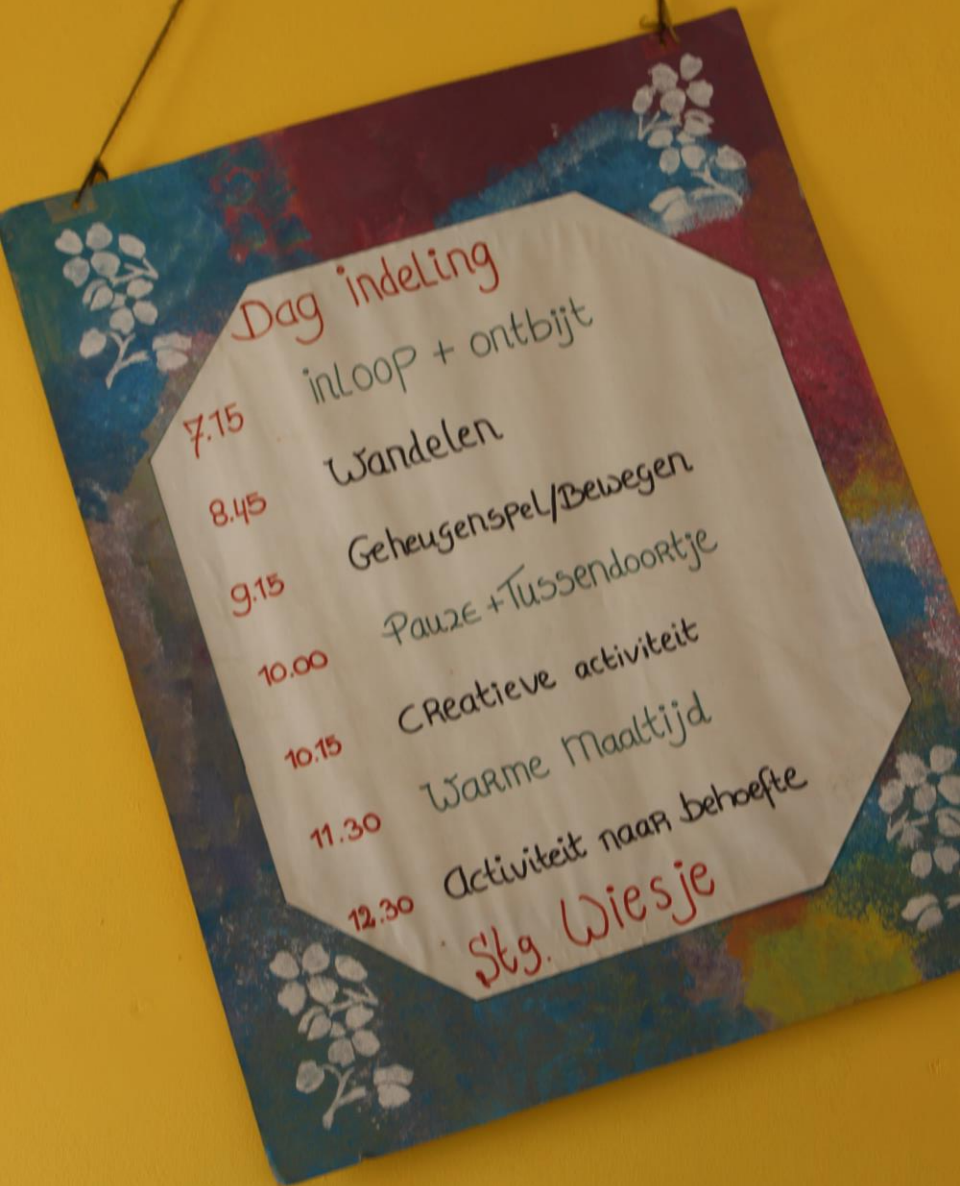 Dag indeling
7.15 inloop + ontbijt
8.45 Wandelen
9.15 Geheugenspel/Bewegen
10.00 Pauze + Tussendoortje
10.15 Creatieve activiteit
11.30 Warme Maaltijd
12.30 Activiteit naar behoefte
Stg. Wiesje